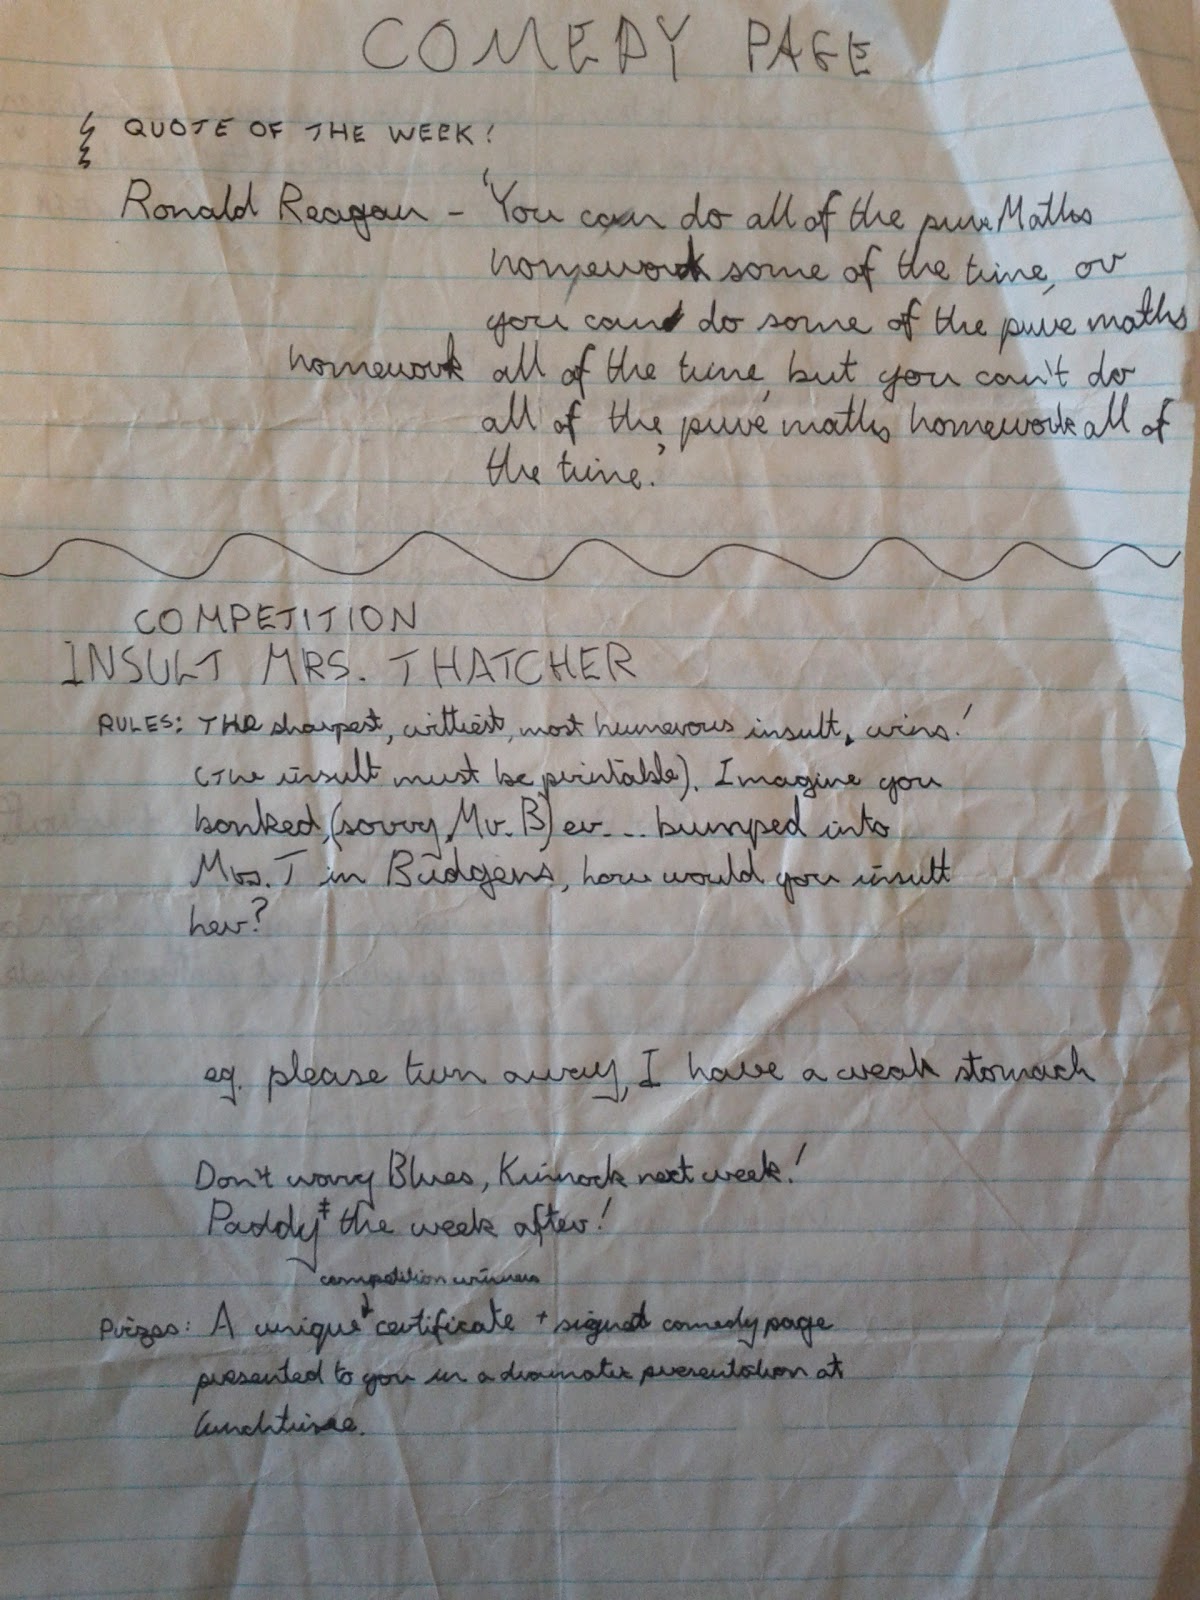 COMEDY PAGE
QUOTE OF THE WEEK!
Ronald Reagan - 'You can do all of the pure Maths
homework some of the time, or
you can do some of the pure maths
homework all of the time, but you can't do
all of the pure maths homework all of
the time.'
COMPETITION
INSULT MRS. THATCHER
RULES: THE sharpest, wittiest, most humerous insult, wins!
(The insult must be printable). Imagine you
bonked, (sorry, Mr. B) er... bumped into
Mrs. T in Budgens, how would you insult
her?
eg. please turn away, I have a weak stomach
Don't worry Blues, Kinnock next week!
Paddy ‡ the week after!
competition winners
Prizes: A unique certificate + signed comedy page
presented to you in a dramatic presentation at
lunchtime.